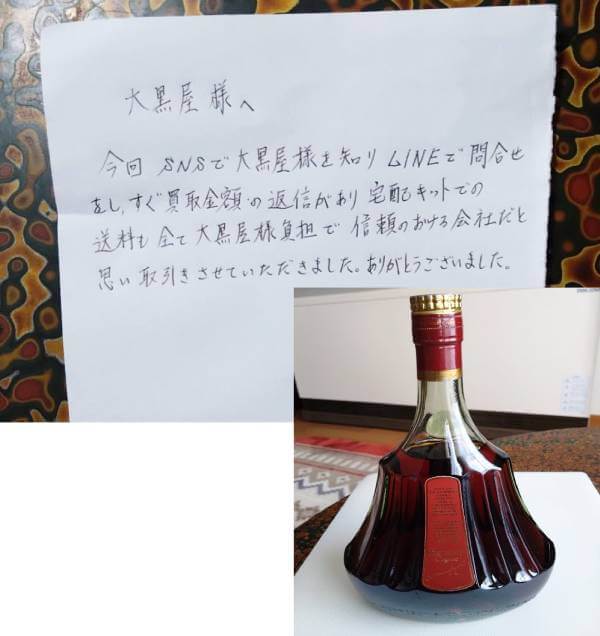 大黒屋様へ
今回 SNSで大黒屋様を知りLINEで問合せ
をし、すぐ買取金額の返信があり 宅配キットでの
送料も全て大黒屋様負担で信頼のおける会社だと
思い取引きさせていただきました。ありがとうございました。